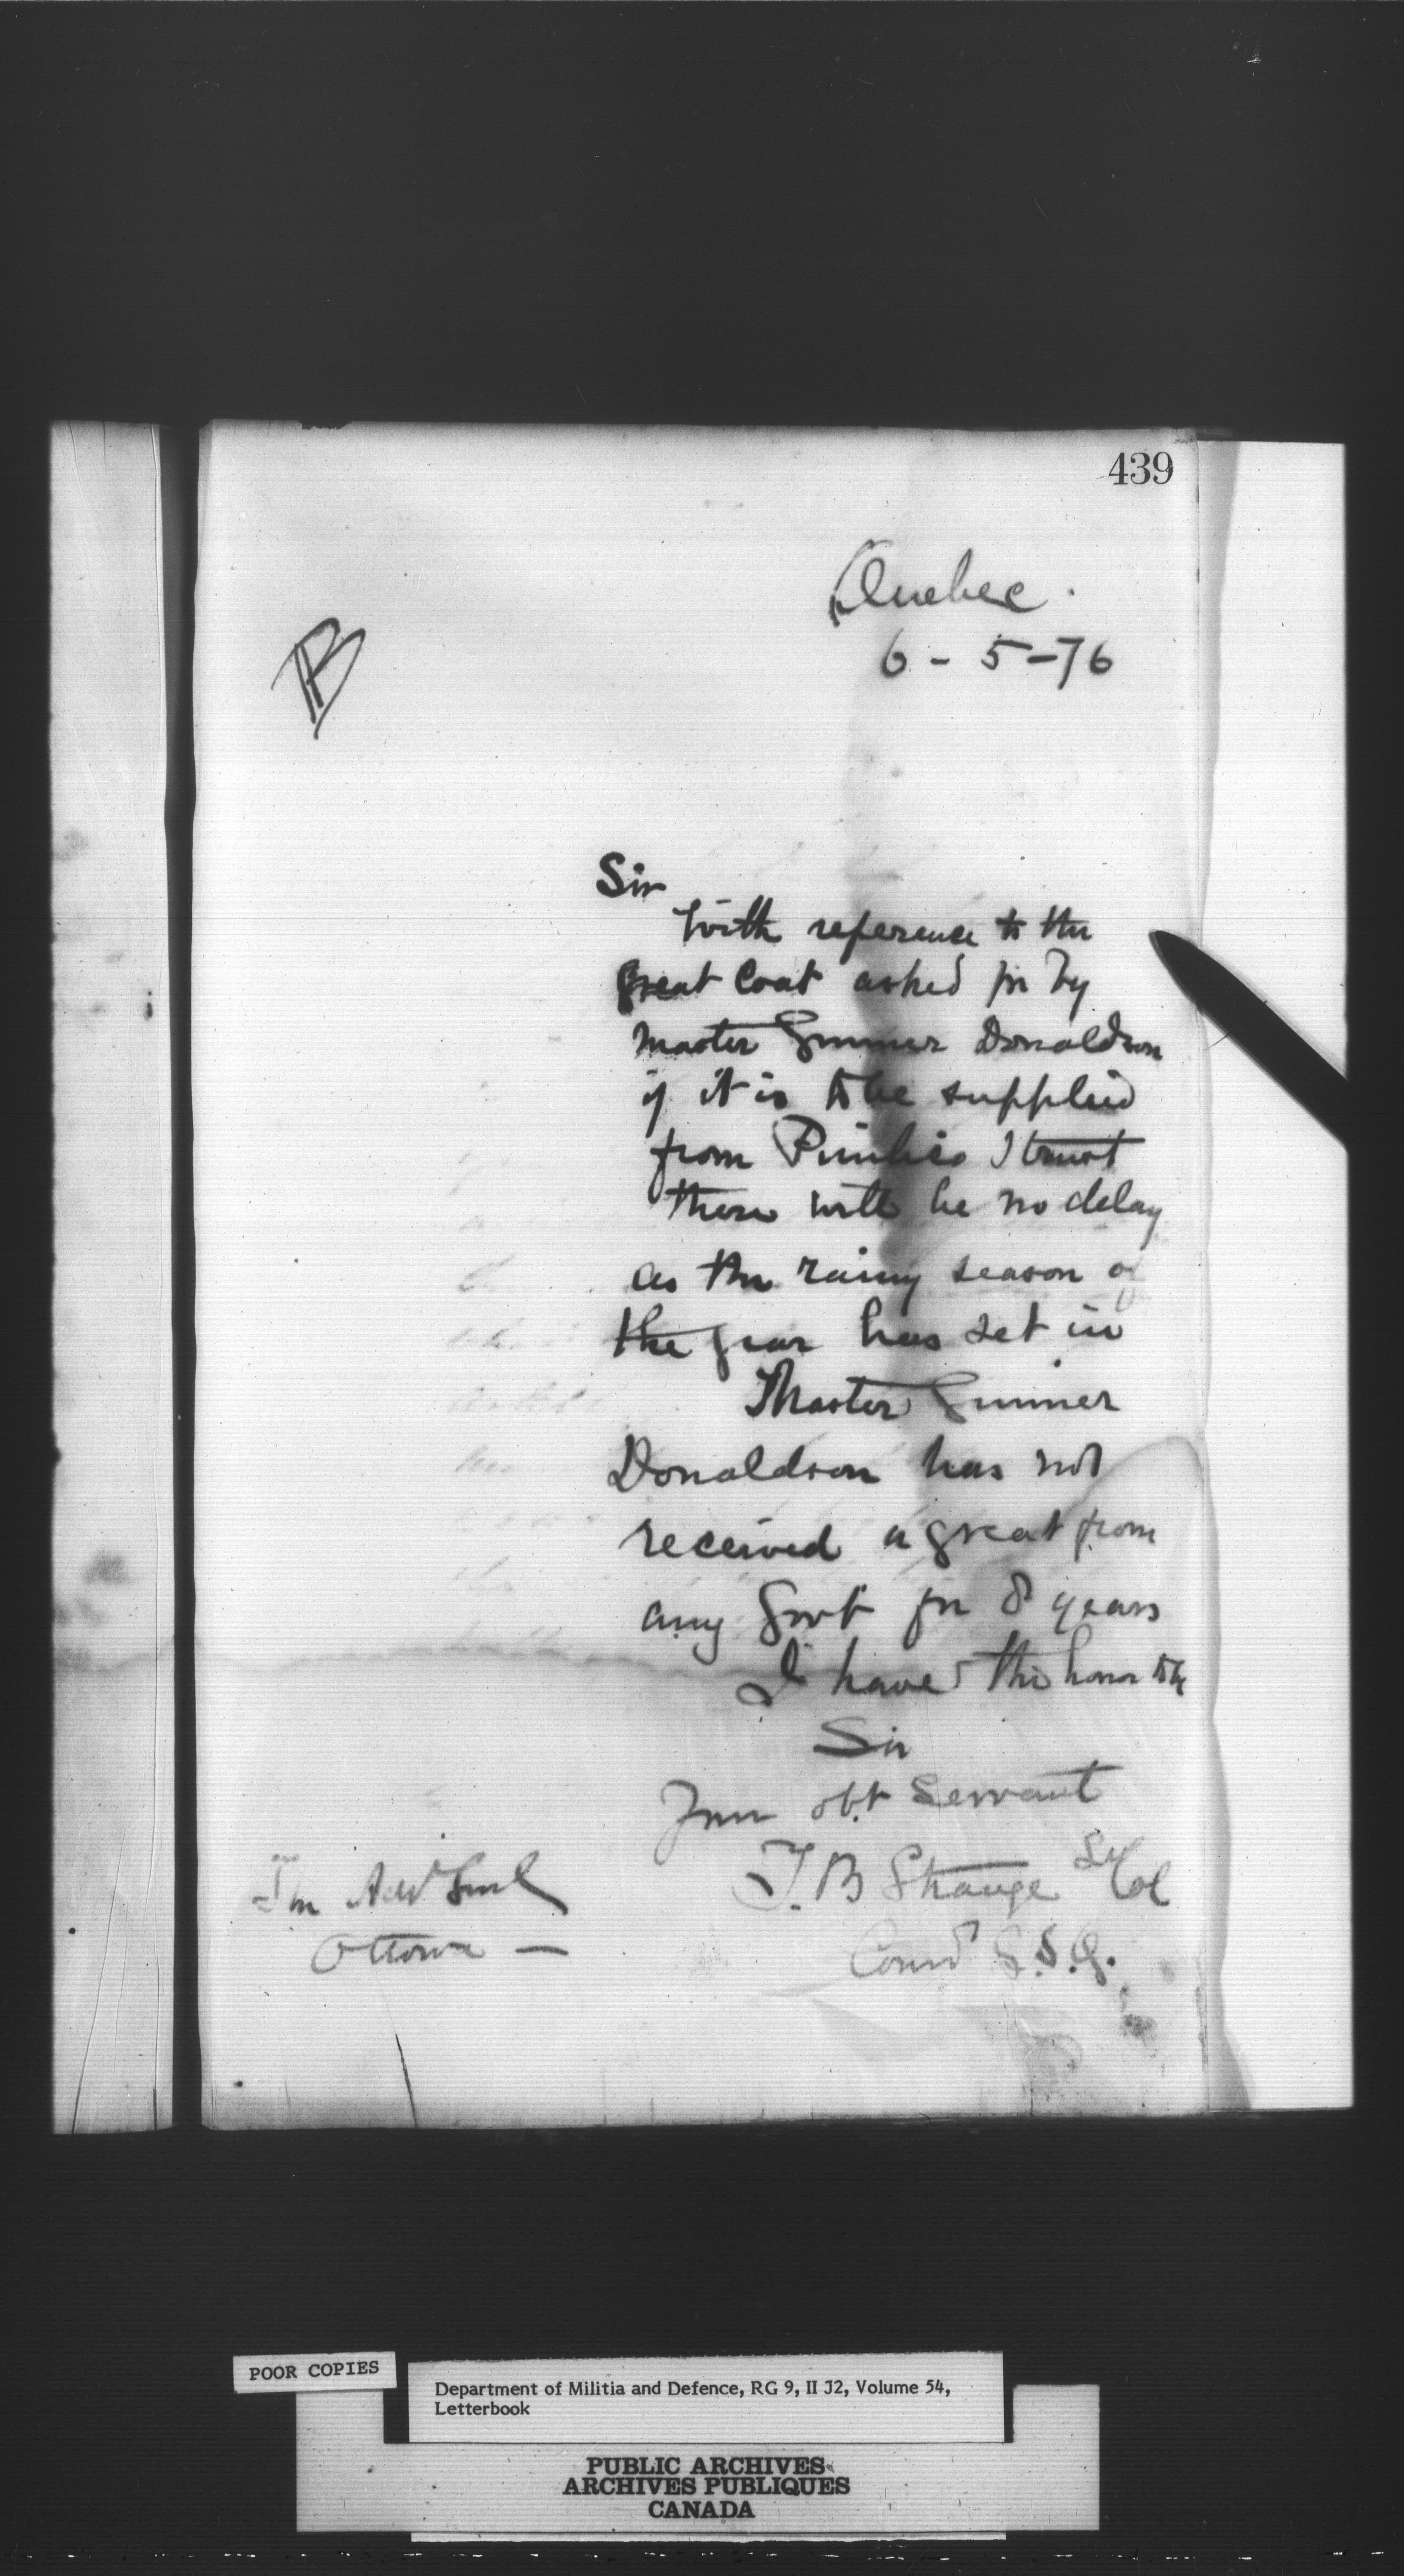 439
Quebec.
6 - 5 - 76
B
Sir
With reference to the
great Coat asked for by
Master Gunner Donaldson
if it is to be supplied
from Pimlico I trust
there will be no delay
as the rainy season of
the year has set in
Master Gunner
Donaldson has not
received a great from
any Govt for 8 years
I have the honor to be
Sir
Your obt Servant
T. B Strange Lt Col
Comd G.S.Q.
The Adjt Genl
Ottawa —
POOR COPIES
Department of Militia and Defence, RG 9, II J2, Volume 54,
Letterbook
PUBLIC ARCHIVES
ARCHIVES PUBLIQUES
CANADA